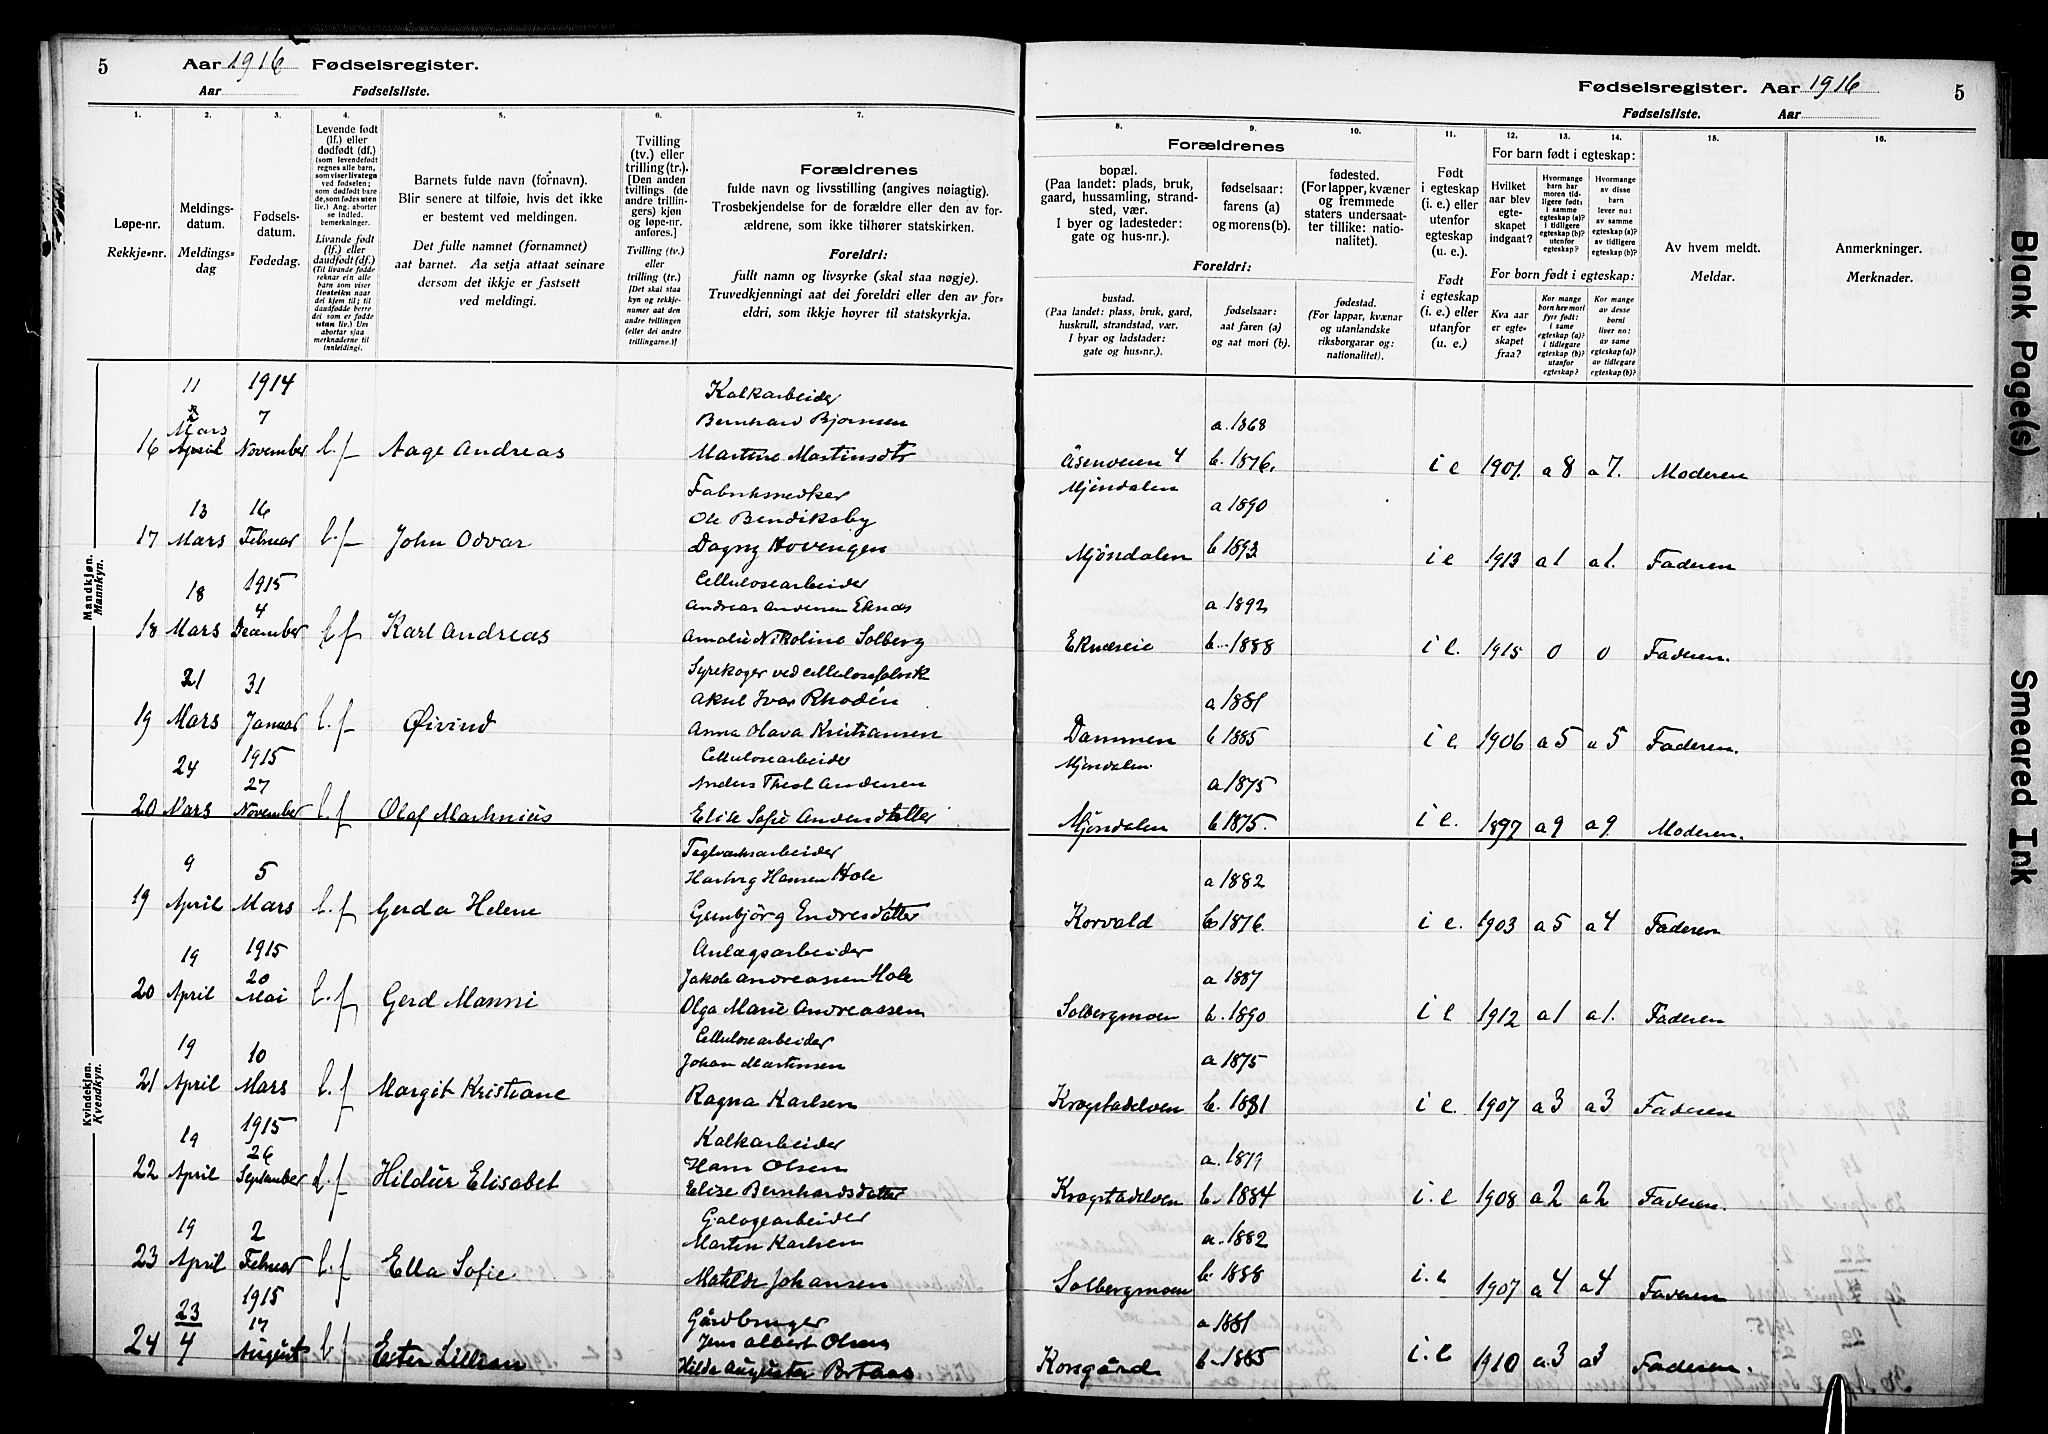 5 Aar 1916 Fødselsregister.
Aar Fødselsliste.
Fødselsregister. Aar 1916 5
Fødselsliste. Aar
1. 2. 3. 4. 5. 6. 7.
Løpe-nr.
Rekkje-nr.
Meldings-
datum.
Meldings-
dag
Fødsels-
datum.
Fødedag.
Levende født
(lf.) eller
dødfødt (df.)
(som levendefødt
regnes alle barn,
som viser livstegn
ved fødselen;
som dødfødt bare
de, som fødes uten
liv.) Ang. aborter
se indled.
bemerkninger.
Livande født
(lf.) eller
daudfødt (df.)
(Til livande fødde
reknar ein alle
barn som viser
livsteikn naar
dei kjem til; til
daudfødde berre
dei som er fødde
utan liv.) Um
abortar sjaa
merknaderne til
innleidingi.
Barnets fulde navn (fornavn).
Blir senere at tilføie, hvis det ikke
er bestemt ved meldingen.
Det fulle namnet (fornamnet)
aat barnet. Aa setja attaat seinare
dersom det ikkje er fastsett
ved meldingi.
Tvilling
(tv.) eller
trilling (tr.).
[Den anden
tvillings (de
andre trillin-
gers) kjøn
og løpe-nr.
anføres.]
Tvilling (tv.)
eller
trilling (tr.)
[Det skal staa
kyn og rekkje-
numer aat den
andre tvillingen
(eller dei andre
trillingarne.)]
Forældrenes
fulde navn og livsstilling (angives nøiagtig).
Trosbekjendelse for de forældre eller den av for-
ældrene, som ikke tilhører statskirken.
Foreldri:
fullt namn og livsyrke (skal staa nøgje).
Truvedkjenningi aat dei foreldri eller den av for-
eldri, som ikkje høyrer til statskyrkja.
8. 9. 10. 11. 12. 13. 14. 15. 16.
Forældrenes
bopæl.
(Paa landet: plads, bruk,
gaard, hussamling, strand-
sted, vær.
I byer og ladesteder:
gate og hus-nr.).
fødselsaar:
farens (a)
og morens (b).
fødested.
(For lapper, kvæner
og fremmede
staters undersaat-
ter tillike: natio-
nalitet).
Foreldri:
bustad.
(Paa landet: plass, bruk, gard,
huskrull, strandstad, vær.
I byar og ladstader:
gate og hus-nr.).
fødselsaar:
aat faren (a)
og aat mori (b).
fødestad.
(For lappar, kvænar
og utanlandske
riksborgarar og:
nationalitet).
Født
i egteskap
(i. e.) eller
utenfor
egteskap
(u. e.).
Født
i egteskap
(i. e.) eller
utanfor
egteskap
(u. e.).
For barn født i egteskap:
Hvilket
aar blev
egte-
skapet
indgaat?
Hvormange
barn har
moren tid-
ligere født:
i samme
egteskap (a)?
i tidligere
egteskap (b)?
utenfor
egteskap?
Hvormange
av disse
barn
lever nu:
av samme
egteskap (a)?
av tidligere
egteskap (b)?
For born født i egteskap:
Kva aar
er egte-
skapet
fraa?
Kor mange
born hev mori
fyrr født:
i same
egteskap (a)?
i tidlegare
egteskap (b)?
utanfor
egteskap?
Kor mange
av desse
borni
liver no:
av same
egteskap (a)?
av tidlegare
egteskap (b)?
Av hvem meldt.
Meldar.
Anmerkninger.
Merknader.
Mandkjøn.
Mannkyn.
11 1914 Kalkarbeider
Mars 7 Bernhard Bjørnsen a. 1868
16 April November l.f Aage Andreas Martine Martinsdtr Åsenveien 4 b. 1876. i e 1901. a 8 a 7. Moderen
Mjøndalen
13 16 Ole Bendiksby a 1890
17 Mars Februar l.f John Odvar Dagny Hovengen Mjøndalen b 1893 i e 1913 a 1 a 1. Faderen
18 1915 Cellulosearbeider
4 Andreas Andersen Eknæs a. 1892
18 Mars December l f Karl Andreas Amalie Nikoline Solberg Eknæseie b. 1888 i e. 1915 0 0 Faderen.
21 31 Syrekoger ved cellulosefabrik
Aksel Ivar Rhodén a 1881
19 Mars Januar l.f Øivind Anna Olava Kristiansen Dammen b 1885 i e. 1906 a 5 a 5 Faderen.
Mjøndalen
24 1915 Cellulosearbeider
27 Anders Andersen a 1875
20 Mars November l.f Olaf Martinius Mjøndalen b 1875. i e. 1897 a 9 a 9 Moderen.
Kvindekjøn.
Kvendkyn.
9 5 Teglværksarbeider
Hansen Hole a 1882
19 April Mars l.f Gerda Helene Gunbjørg Endresdatter Korvald b 1876. i e. 1903 a 5 a 4 Faderen
19 1915 Anlægsarbeider
20 Jakob Andreassen Hole a 1887
20 April Mai l.f Gerd Manni Olga Marie Andreassen Solbergmoen b. 1890 i e 1912 a 1 a 1. Faderen
19 10 Cellulosearbeider
Johan Martinsen a 1875
21 April Mars l.f Margit Kristiane Ragna Karlsen Krogstadelven b. 1881 i e. 1907 a 3 a 3 Faderen
19 1915 Kalkarbeider
26 Hans Olsen a. 1879
22 April September l.f Hildur Elisabet Elise Bernhardsdatter Krogstadelven b. 1884 i. e 1908 a 2 a 2 Faderen.
19 2 Galogearbeider
Martin Karlsen a. 1882
23 April Februar l.f Ella Sofie. Matilde Johansen Solbergmoen b. 1888 i. e 1907 a 4 a 4 Faderen
23 1915 Gårdbruger
17 Jens Albert Olsen a 1881
24 4 August l.f Ester Lillian Hilda Augusta Korsgård b. 1885 i. e 1910 a. 3 a 3 Faderen.
Blank Page(s)
Smeared Ink